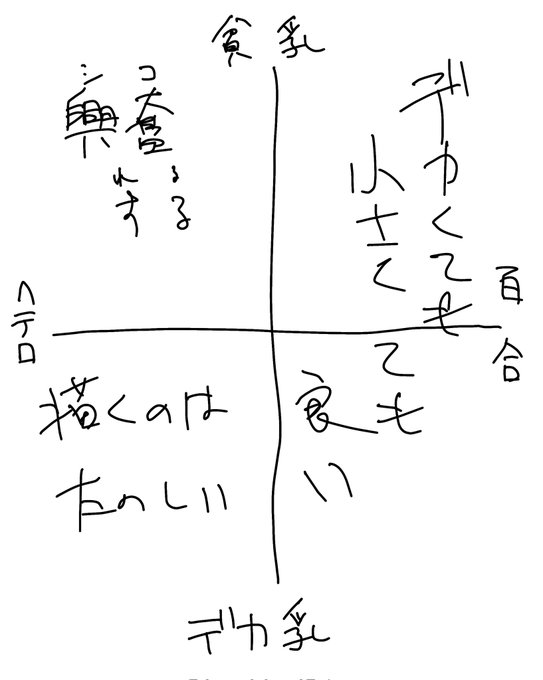 貧乳
シコ
興奮
れる
する
デカくても
小さくても
良い
百合
ヘテロ
描くのは
たのしい
デカ乳